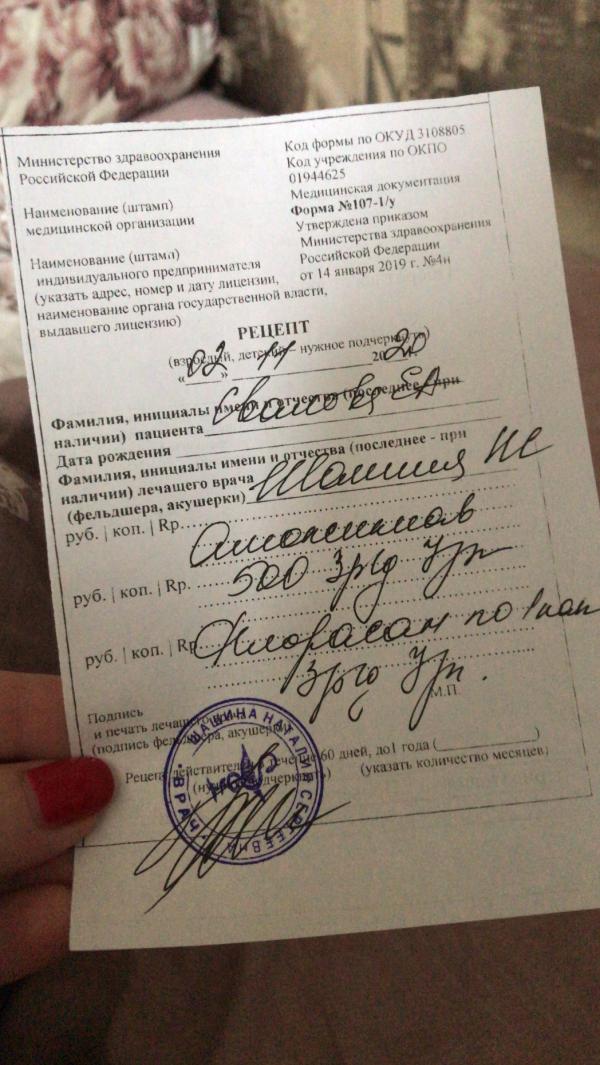 Министерство здравоохранения
Российской Федерации
Код формы по ОКУД 3108805
Код учреждения по ОКПО
01944625
Медицинская документация
Форма №107-1/у
Утверждена приказом
Министерства здравоохранения
Российской Федерации
от 14 января 2019 г. №4н
Наименование (штамп)
медицинской организации
Наименование (штамп)
индивидуального предпринимателя
(указать адрес, номер и дату лицензии,
наименование органа государственной власти,
выдавшего лицензию)
РЕЦЕПТ
(взрослый, детский – нужное подчеркнуть)
«02» 11 2020
Фамилия, инициалы имени и отчества (последнее – при
наличии) пациента
Дата рождения
Фамилия, инициалы имени и отчества (последнее - при
наличии) лечащего врача
(фельдшера, акушерки)
руб. | коп. | Rp. Амоксиклав
руб. | коп. | Rp. 500 3р/д
руб. | коп. | Rp. по 1 кап
3р/д
М.П.
Подпись
и печать лечащего
(подпись фельдшера, акушерки)
Рецепт действителен в течение 60 дней, до 1 года (
(нужное подчеркнуть) (указать количество месяцев)
ШАШИНА НАТАЛИЯ СЕРГЕЕВНА
ВРАЧ